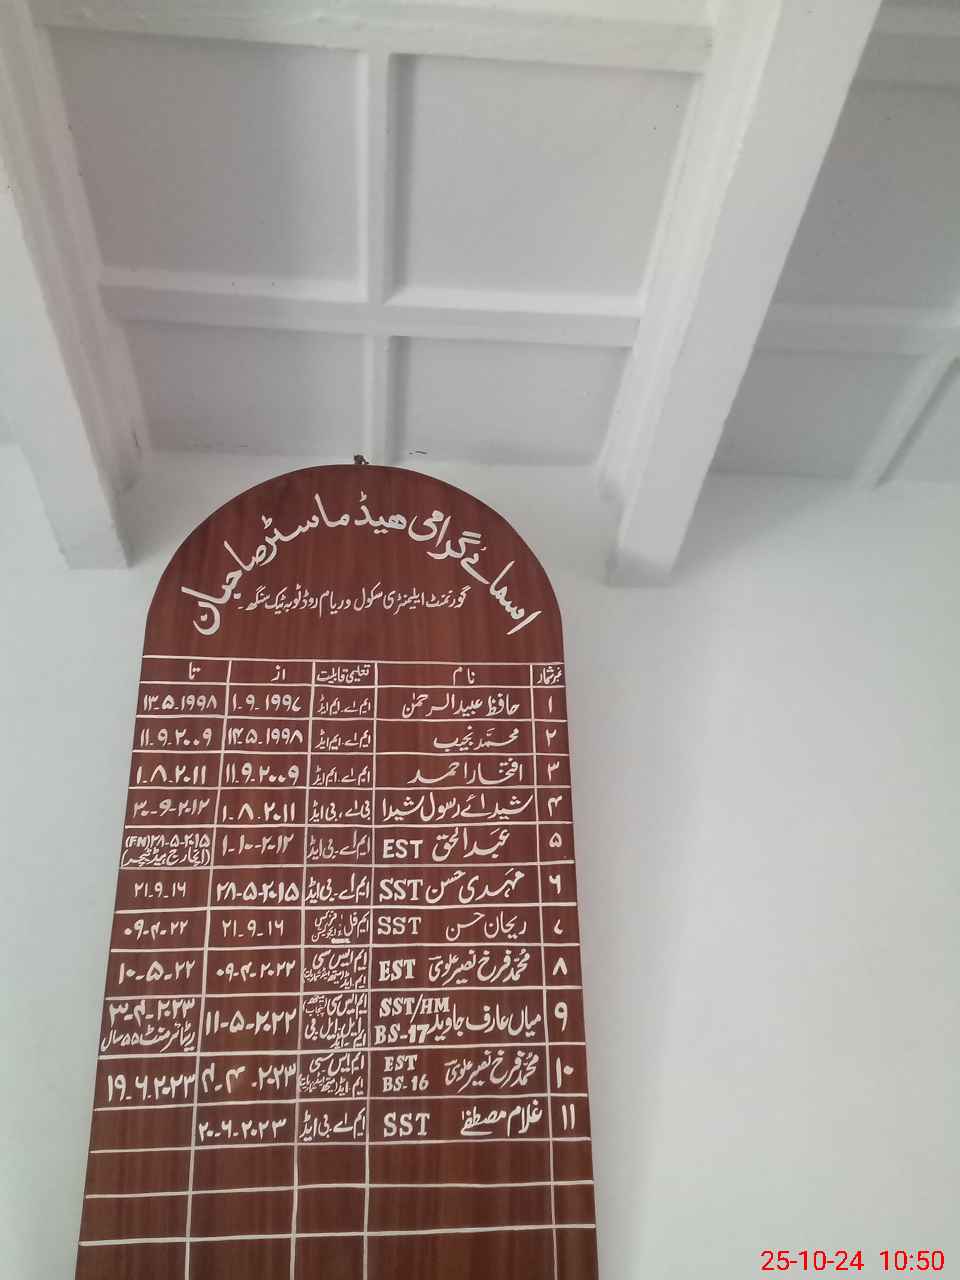 اسمائے گرامی ھیڈ ماسٹر صاحبان
گورنمنٹ ایلیمنٹری سکول وریام روڈ ٹوبہ ٹیک سنگھ۔
نمبر شمار نام تعلیمی قابلیت از تا
۱ حافظ عبید الرحمٰن ایم اے۔ایم ایڈ ۱.۹.۱۹۹۷ ۱۳.۵.۱۹۹۸
۲ محمّد نجیب ایم اے۔ایم ایڈ ۱۴.۵.۱۹۹۸ ۱۱.۹.۲۰۰۹
۳ افتخار احمد ایم اے۔ایم ایڈ ۱۱.۹.۲۰۰۹ ۱.۸.۲۰۱۱
۴ شیدائے رسول شیدا بی اے،بی ایڈ ۱.۸.۲۰۱۱ ۳۰-۹-۲۰۱۲
۵ عبد الحق EST ایم اے۔بی ایڈ ۱-۱۰-۲۰۱۲ (FN)۲۸-۵-۲۰۱۵
(انچارج ہیڈ ٹیچر)
۶ مہدی حسن SST ایم اے۔بی ایڈ ۲۸-۵-۲۰۱۵ ۲۱.۹.۱۶
۷ ریحان حسن SST ایم فل ۲۱.۹.۱۶ ۰۹-۴-۲۲
۸ محمّد فرخ نصیر علوی EST ایم ایس سی ۰۹-۴-۲۰۲۲ ۱۰-۵-۲۲
ایم۔ایڈ
۹ میاں عارف جاوید SST/HM ایم ایس سی ۱۱-۵-۲۰۲۲ ۳-۴-۲۰۲۳
BS-17 ایل۔ایل بی ریٹائرمنٹ ۵۵ سال
۱۰ محمّد فرخ نصیر علوی EST ایم ایس سی ۴-۴-۲۰۲۳ ۱۹.۶.۲۰۲۳
BS-16 ایم۔ایڈ
۱۱ غلام مصطفےٰ SST ایم اے بی ایڈ ۲۰-۶-۲۰۲۳
25-10-24 10:50